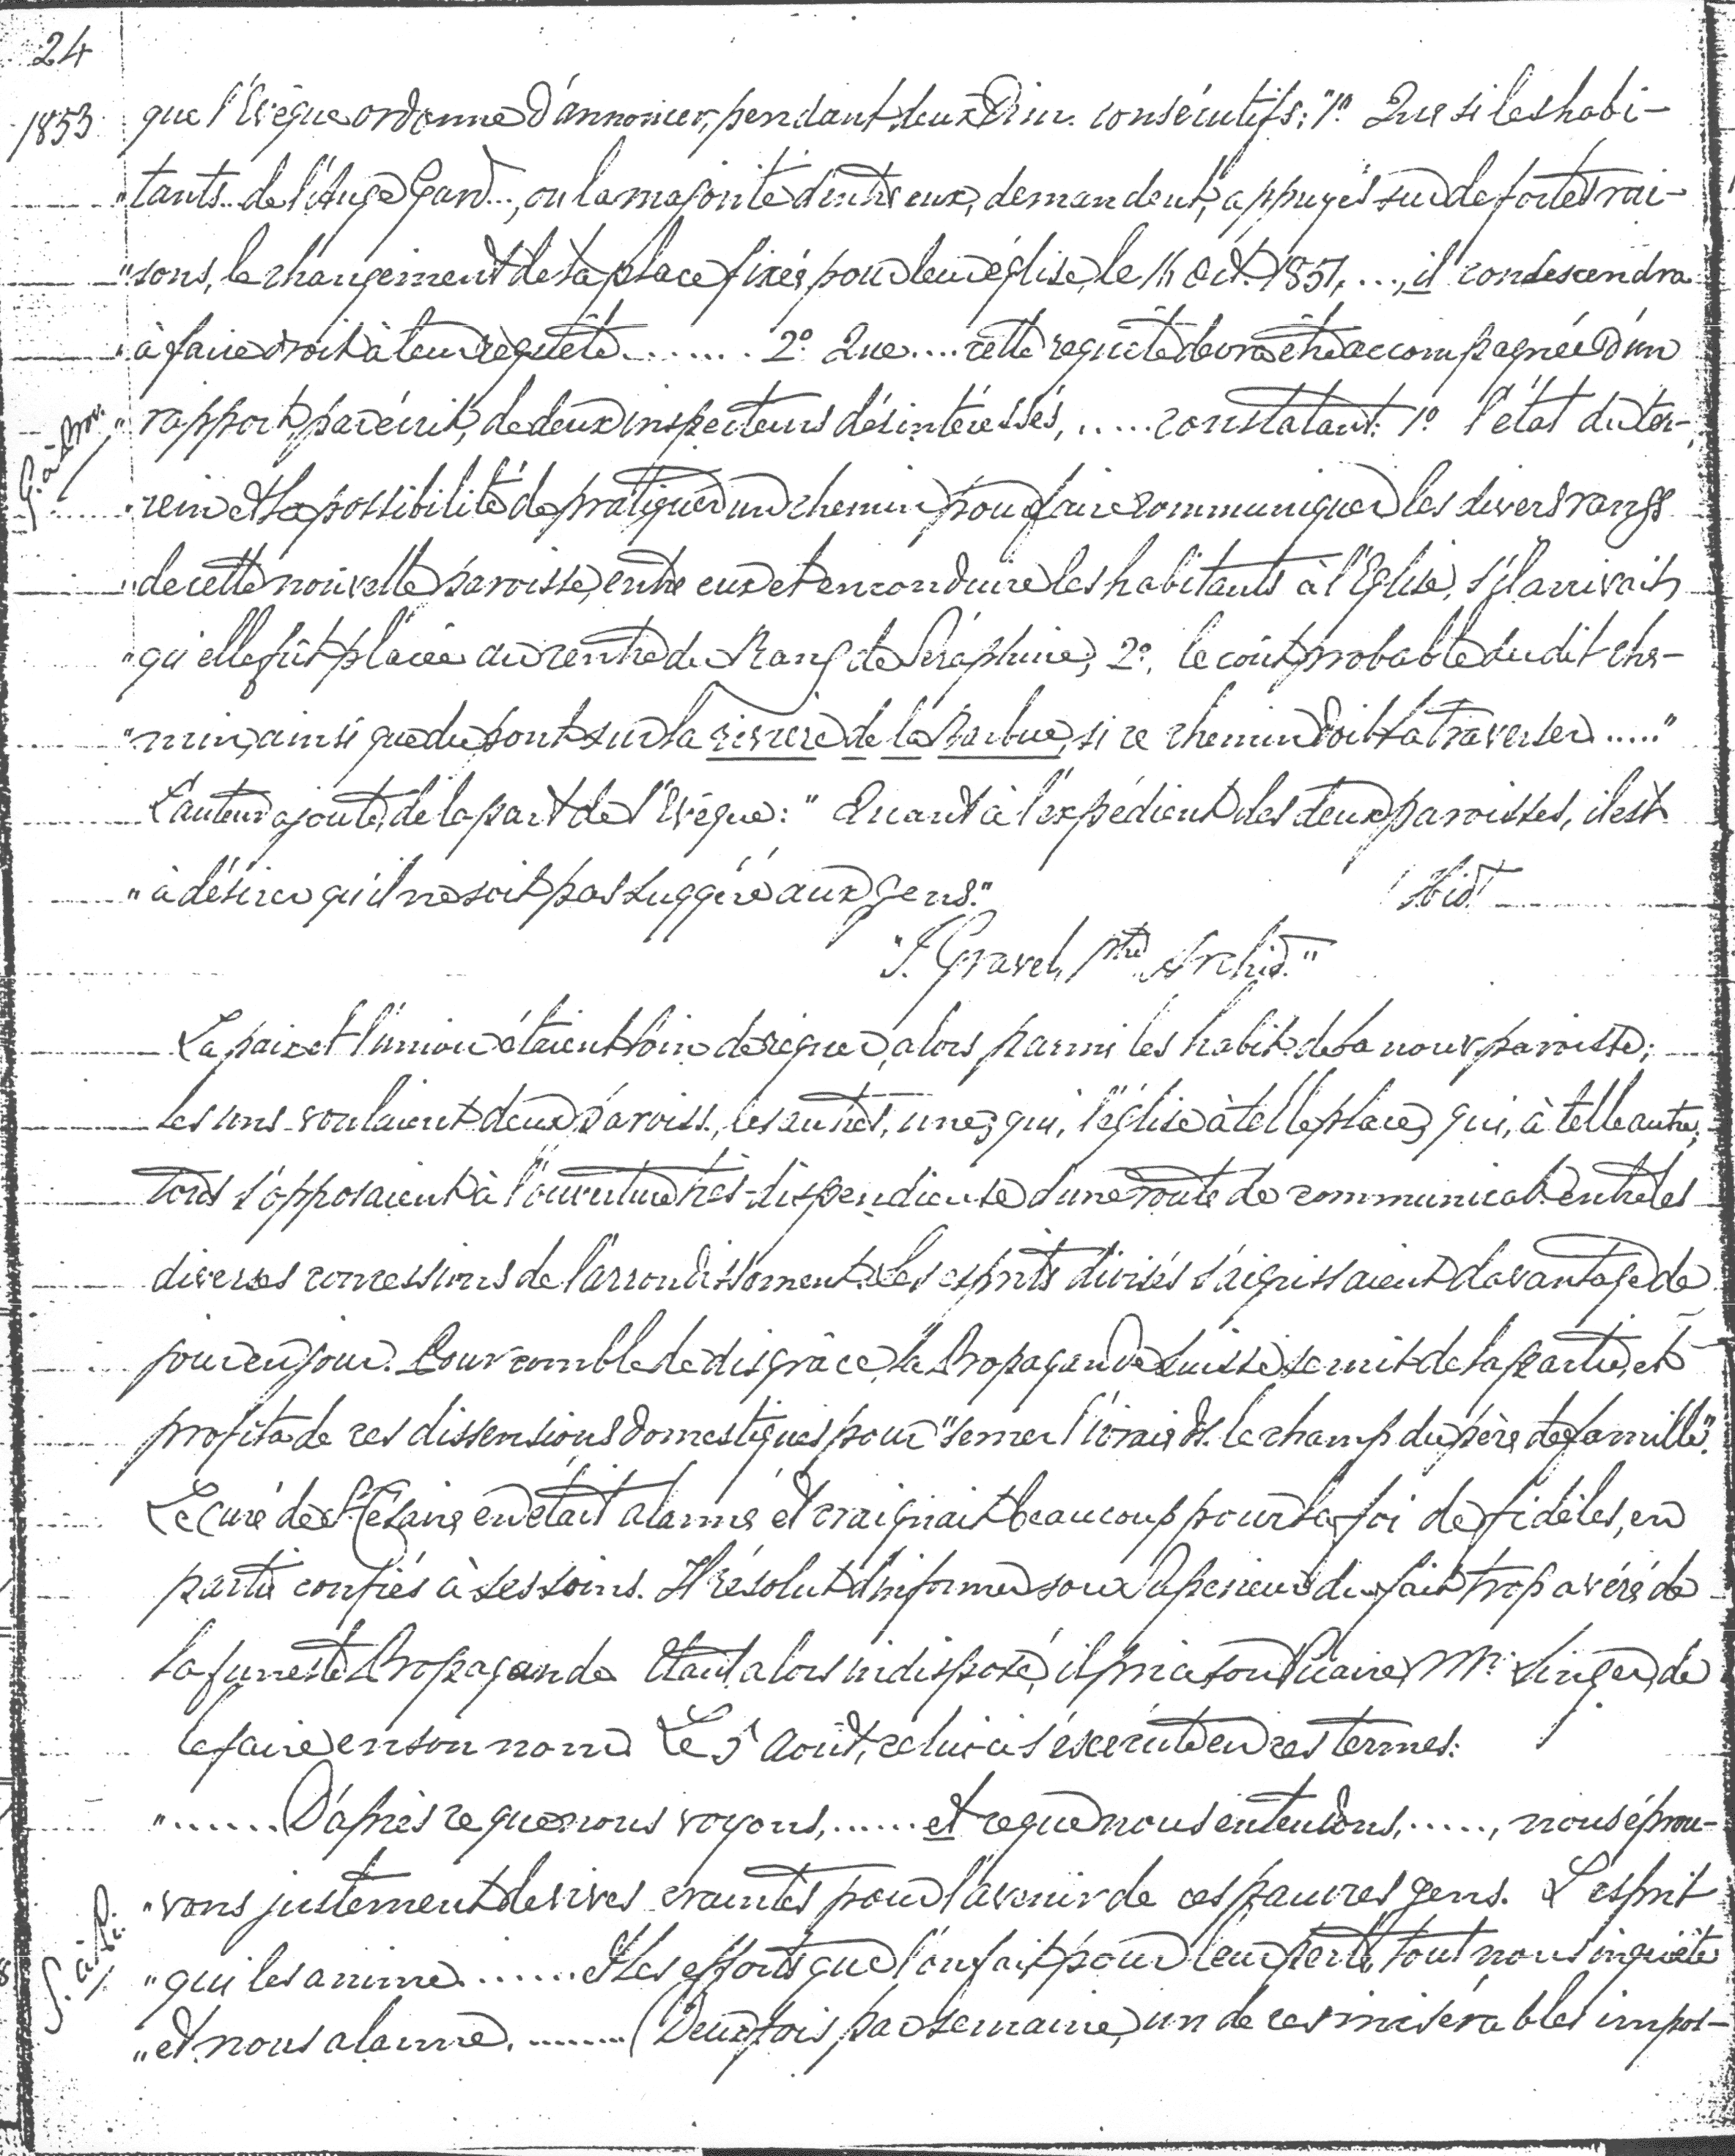 24
1853
que l'Evêque ordonne d'annoncer, pendant deux Dim. consécutifs: "1º Que si les habi-
"tants de l'Ange Gard..., ou la majorité d'entre eux, demandent, appuyés sur de fortes rai-
"sons, le changement de la place fixée pour leur église, le 11 Oct. 1851, ...., il condescendra
"à faire droit à leur requête ....... 2º Que .... cette requête devra être accompagnée d'un
"rapport, par écrit, de deux inspecteurs désintéressés, ..... constatant: 1º l'état du ter-
"rein et la possibilité de pratiquer un chemin pour faire communiquer les divers rangs
"de cette nouvelle paroisse, entre eux et en conduire les habitants à l'Eglise, s'il arrivait
"qu'elle fût placée au centre du Rang de Séraphine; 2º, le coût probable du dit che-
"min, ainsi que du pont sur la rivière de la Barbue, si ce chemin doit la traverser ....."
L'auteur ajoute, de la part de l'Evêque: "Quant à l'expédient des deux paroisses, il est
"à désirer qu'il ne soit pas suggéré aux gens."
"J. Gravel, Ptre Archid."
La paix et l'union étaient loin de régner, alors, parmi les habit. de la nouv. paroisse;
les uns voulaient deux paroiss., les autres, une; qui, l'église à telle place, qui, à telle autre;
tous s'opposaient à l'ouverture très-dispendieuse d'une route de communicat. entre les
diverses concessions de l'arrondissement. Les esprits divisés s'aigrissaient davantage de
jour en jour. Pour comble de disgrâce, la Propagande Suisse se mit de la partie, et
profita de ces dissensions domestiques pour "semer l'ivraie ds. le champ du père de famille".
Le Curé de St Césaire en était alarmé et craignait beaucoup pour la foi de fidèles, en
partie confiés à ses soins. Il résolut d'informer son Supérieur du fait trop avéré de
la funeste Propagande. Etant alors indisposé, il pria son Vicaire, Mr. Singer, de
le faire en son nom. Le 5 Août, celui-ci s'exécute en ces termes:
"....... D'après ce que nous voyons, ...... et ce que nous entendons, ....., nous éprou-
"vons justement de vives craintes pour l'avenir de ces pauvres gens. L'esprit
"qui les anime ....... et les efforts que l'on fait pour leur perte, tout nous inquiète
"et nous alarme. ........ (Deux fois par semaine, un de ces misérables impos-